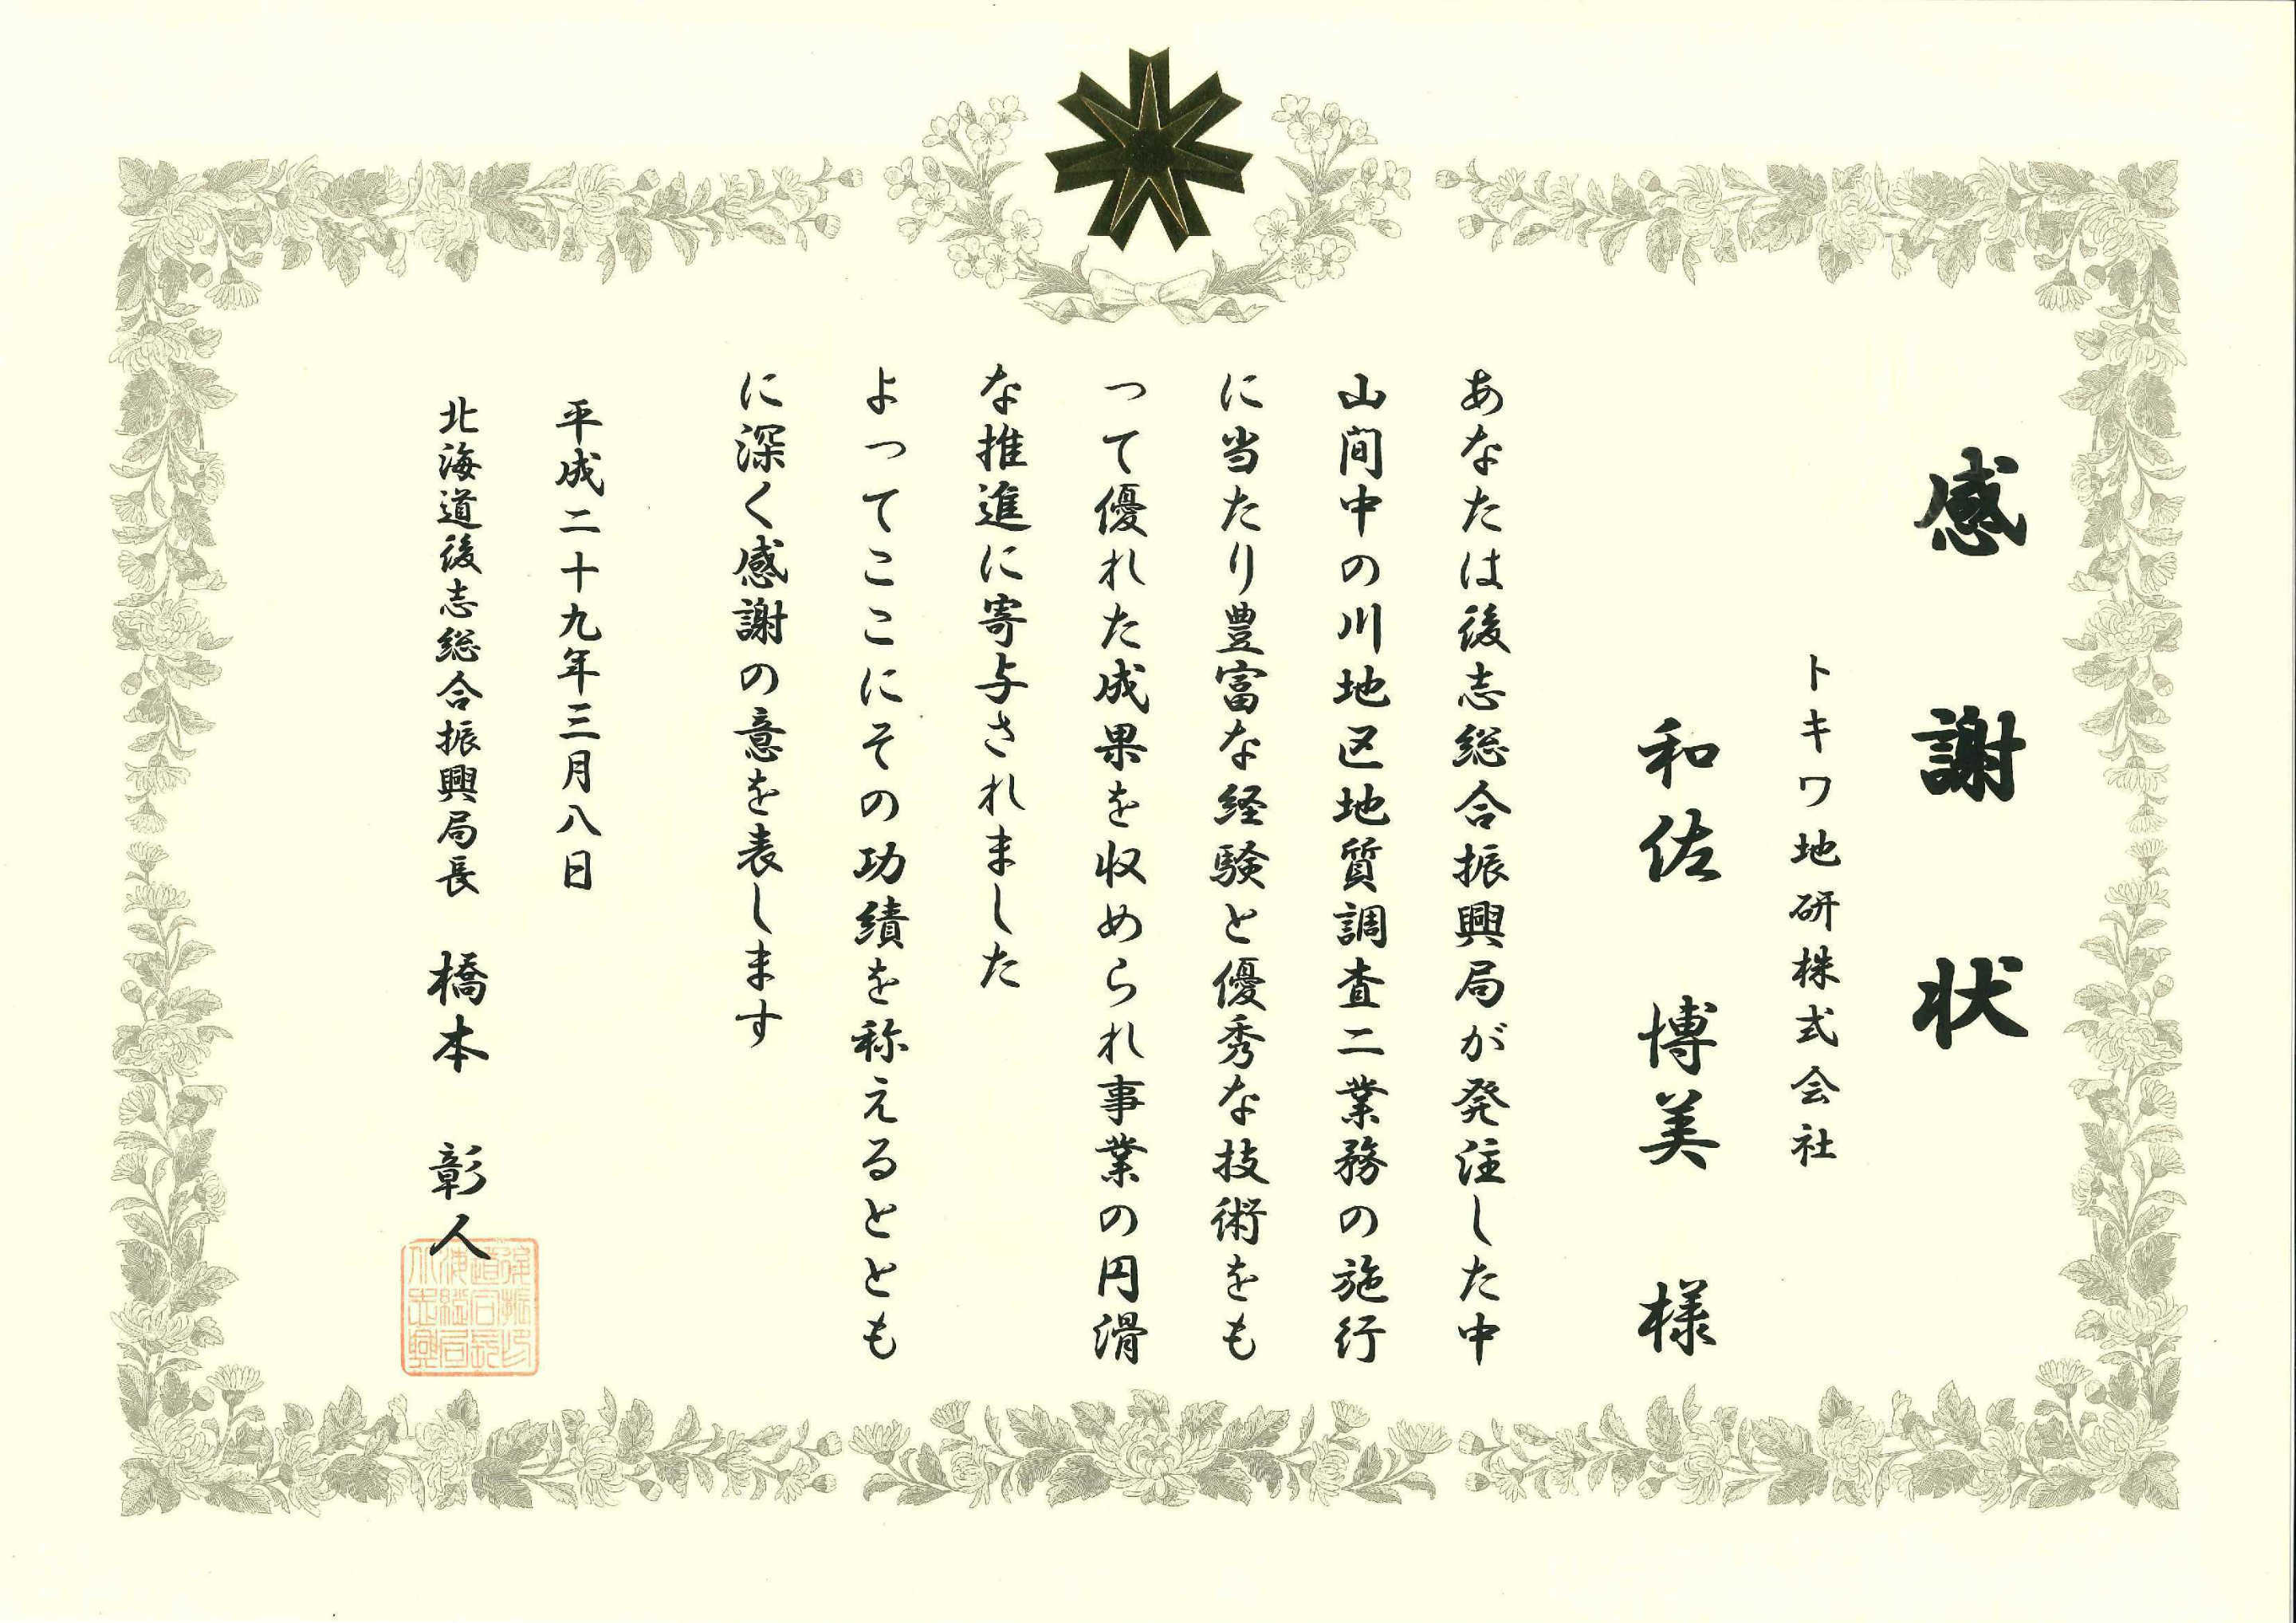 感謝状
トキワ地研株式会社
和佐 博美 様
あなたは後志総合振興局が発注した中
山間中の川地区地質調査二業務の施行
に当たり豊富な経験と優秀な技術をも
って優れた成果を収められ事業の円滑
な推進に寄与されました
よってここにその功績を称えるととも
に深く感謝の意を表します
平成二十九年三月八日
北海道後志総合振興局長 橋本 彰人